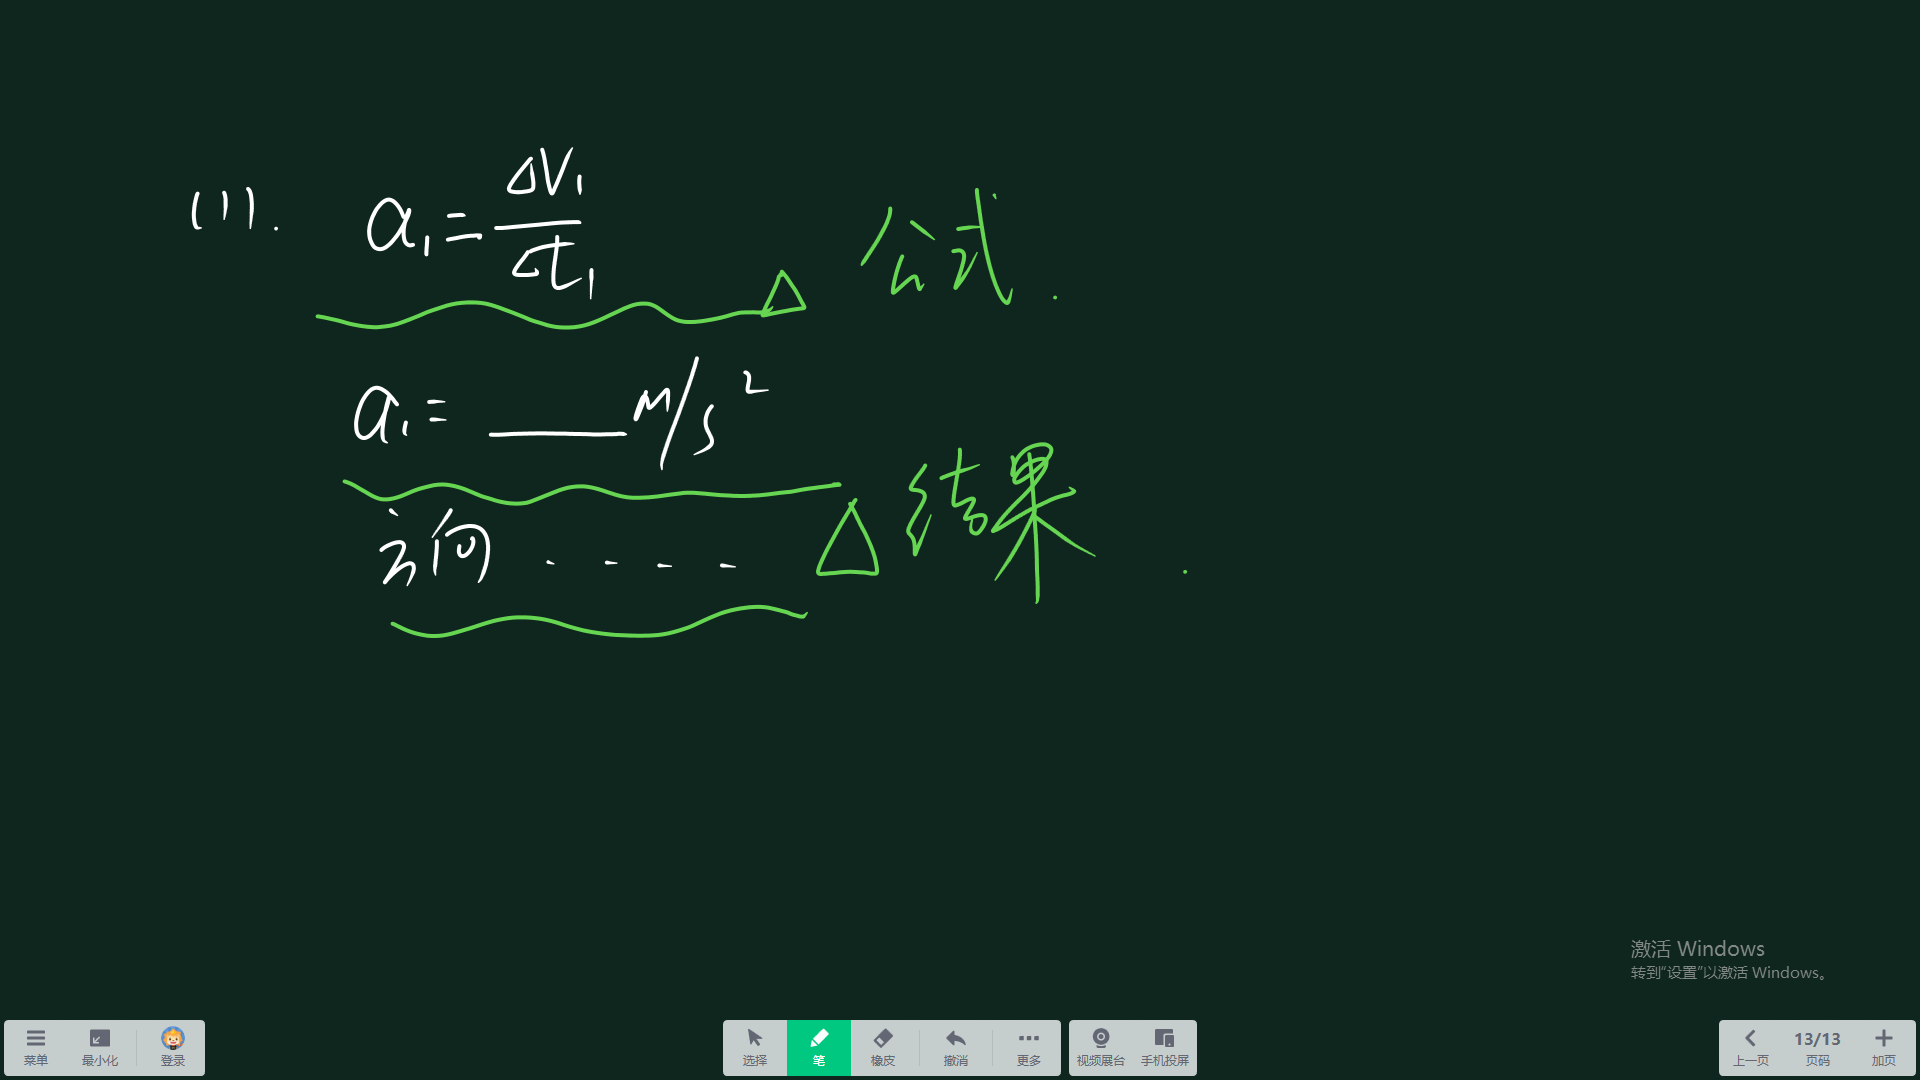 (1). a₁=ΔV₁/Δt₁ △ 公式.
a₁= ___m/s²
方向 .... △ 结果.
激活 Windows
转到“设置”以激活 Windows。
菜单 最小化 登录 选择 笔 橡皮 撤消 更多 视频展台 手机投屏 上一页 13/13 页码 加页